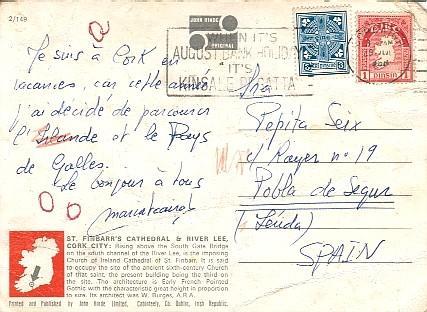 2/149
JOHN HINDE
ORIGINAL
WHEN IT'S
AUGUST BANK HOLIDAY
IT'S
KINSALE REGATTA
Je suis à Cork en
vacances, car cette année
j'ai décidé de parcourir
l'Irlande et le Pays
de Galles.
Le bonjour à tous
Sra
Pepita Seix
c/ Roger nº 19
Pobla de Segur
(Lérida)
SPAIN
ST. FINBARR'S CATHEDRAL & RIVER LEE,
CORK CITY: Rising above the South Gate Bridge
on the south channel of the River Lee, is the imposing
Church of Ireland Cathedral of St. Finbarr. It is said
to occupy the site of the ancient sixth-century Church
of that saint, the present building being the third on
the site. The architecture is Early French Pointed
Gothic with the characteristic great height in proportion
to size. Its architect was W. Burges, A.R.A.
Printed and Published by John Hinde Limited, Cabinteely, Co. Dublin, Irish Republic.